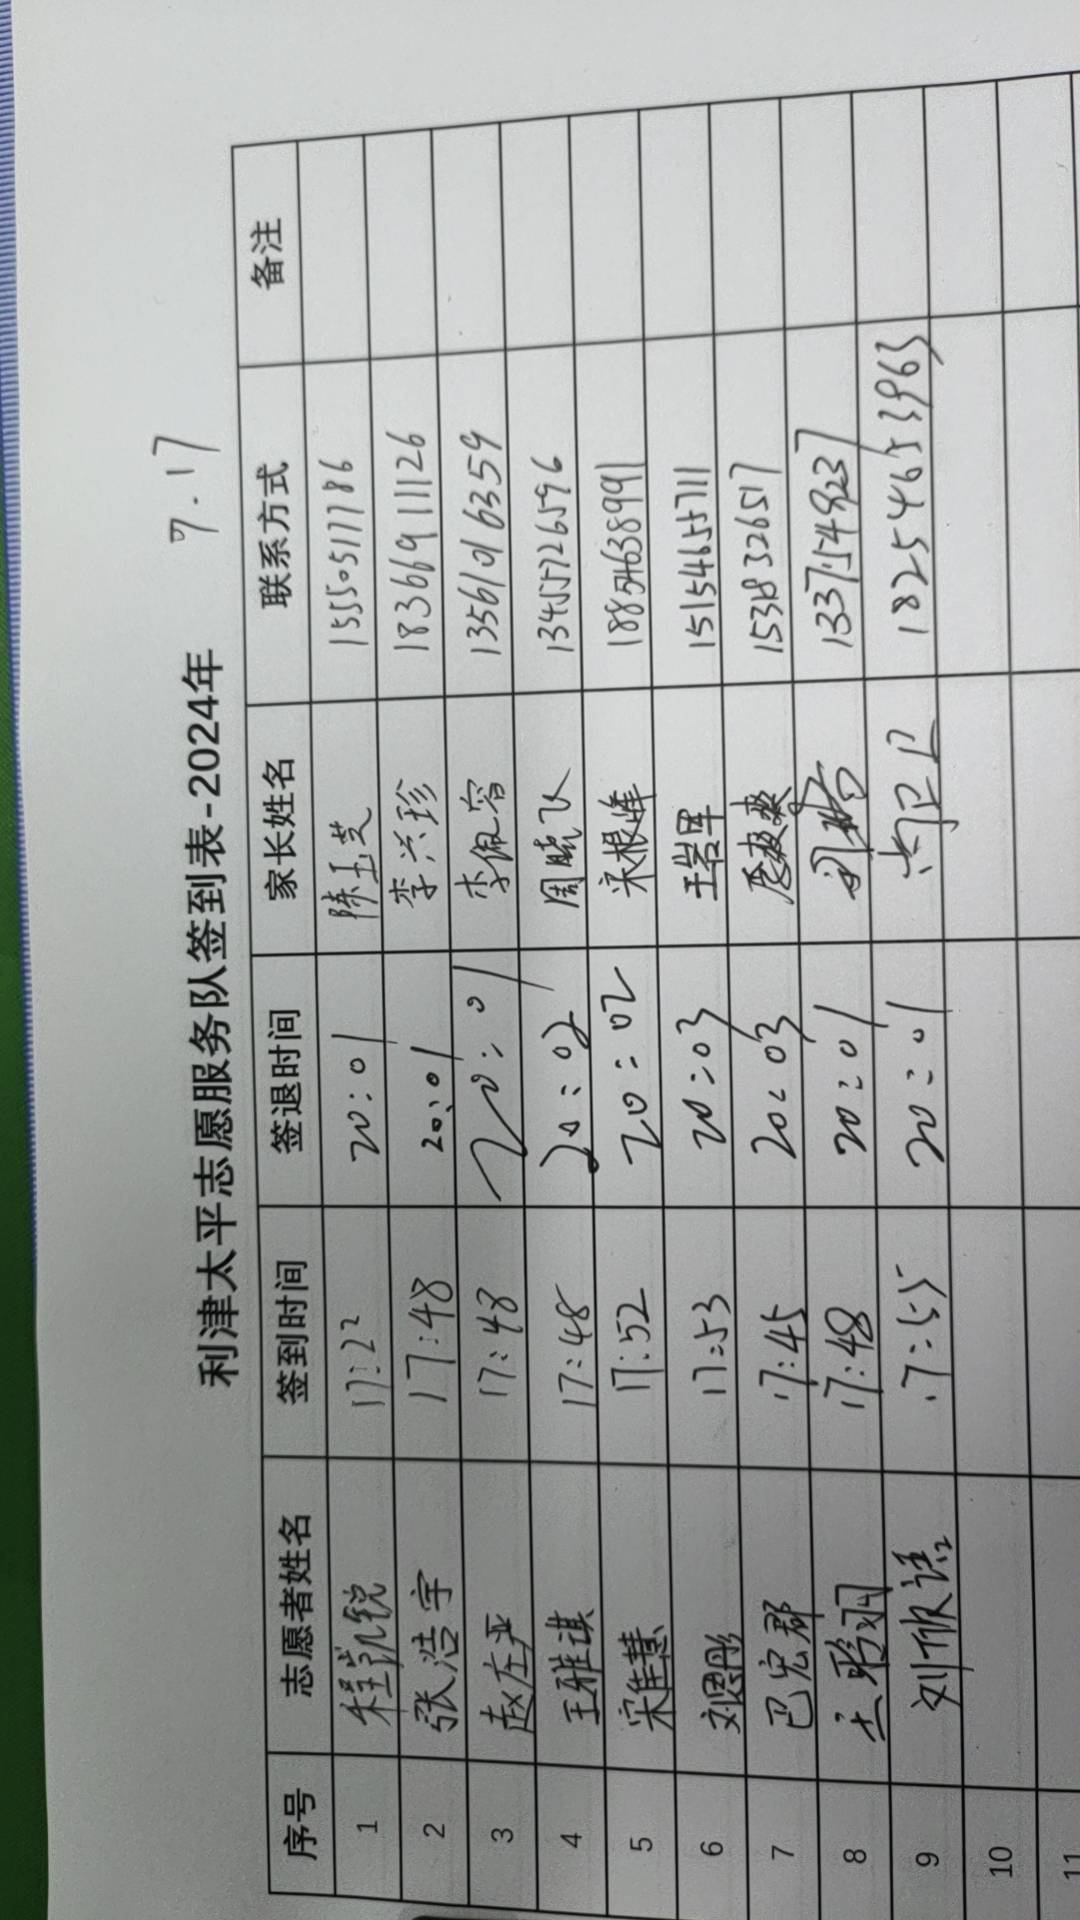 利津太平志愿服务队签到表-2024年 9.17
序号 志愿者姓名 签到时间 签退时间 家长姓名 联系方式 备注
1 程凯锐 17:22 20:01 陈玉芝 15550511786
2 张浩宇 17:48 20:01 李兴珍 18366911126
3 赵左严 17:48 20:01 李佩容 13561016359
4 王雅琪 17:48 20:02 周晓飞 13455726596
5 宋佳慧 17:52 20:02 宋根峰 18854638991
6 刘恩彤 17:53 20:03 王岩军 15154655711
7 巴宏郡 17:45 20:03 15318326517
8 17:48 20:01
9 刘欣 17:55 20:01 18254653963
10
11